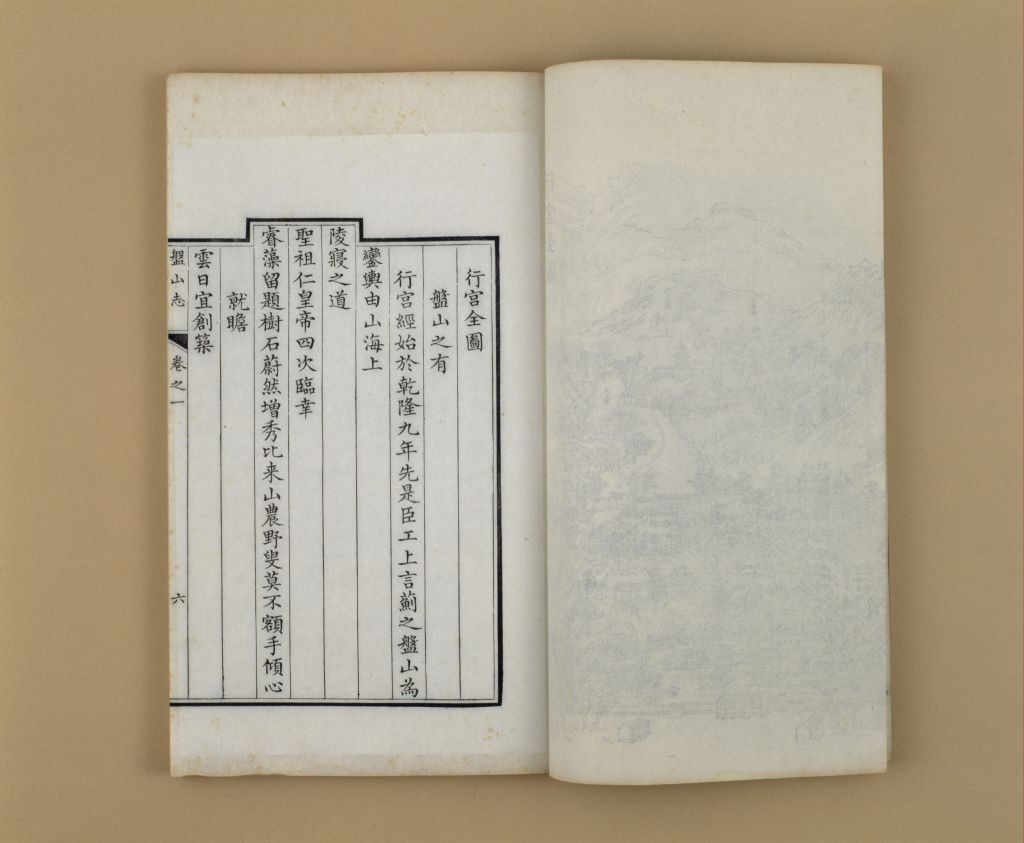 行宮全圖
盤山之有
行宮經始於乾隆九年先是臣工上言薊之盤山為
鑾輿由山海上
陵寢之道
聖祖仁皇帝四次臨幸
睿藻留題樹石蔚然增秀比来山農野叟莫不額手傾心
就瞻
雲日宜創築
盤山志
卷之一
六